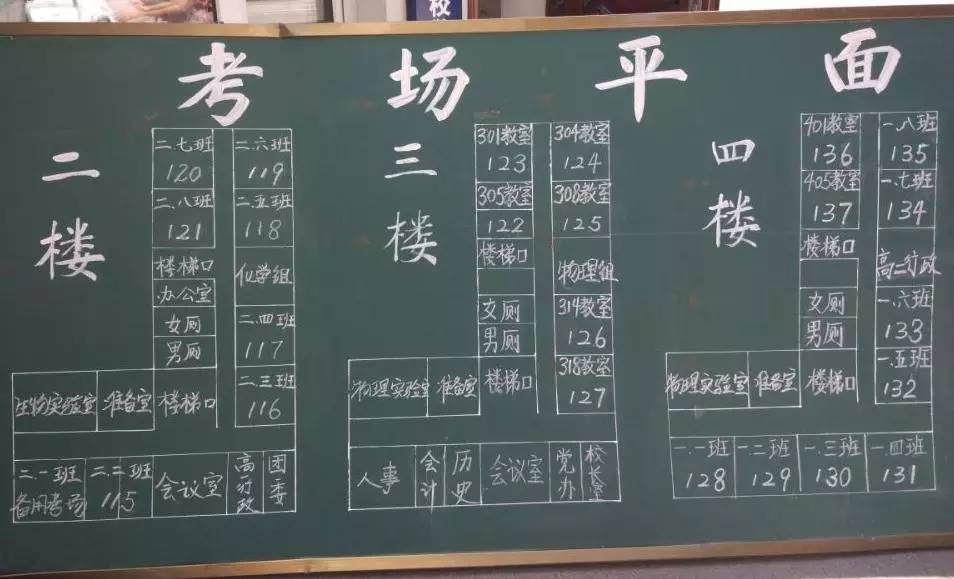 校
考场平面
二楼
二.七班
120
二.六班
119
二.八班
121
二.五班
118
楼梯口
化学组
办公室
女厕
二.四班
117
男厕
生物实验室
准备室
楼梯口
二.三班
116
二.一班
备用考场
二.二班
115
会议室
高一行政
团委
三楼
301教室
123
304教室
124
305教室
122
308教室
125
楼梯口
物理组
女厕
314教室
126
男厕
物理实验室
准备室
楼梯口
318教室
127
人事
会计
历史
会议室
党办
校长室
四楼
401教室
136
一.八班
135
405教室
137
一.七班
134
楼梯口
高二行政
女厕
一.六班
133
男厕
物理实验室
准备室
楼梯口
一.五班
132
一.一班
128
一.二班
129
一.三班
130
一.四班
131